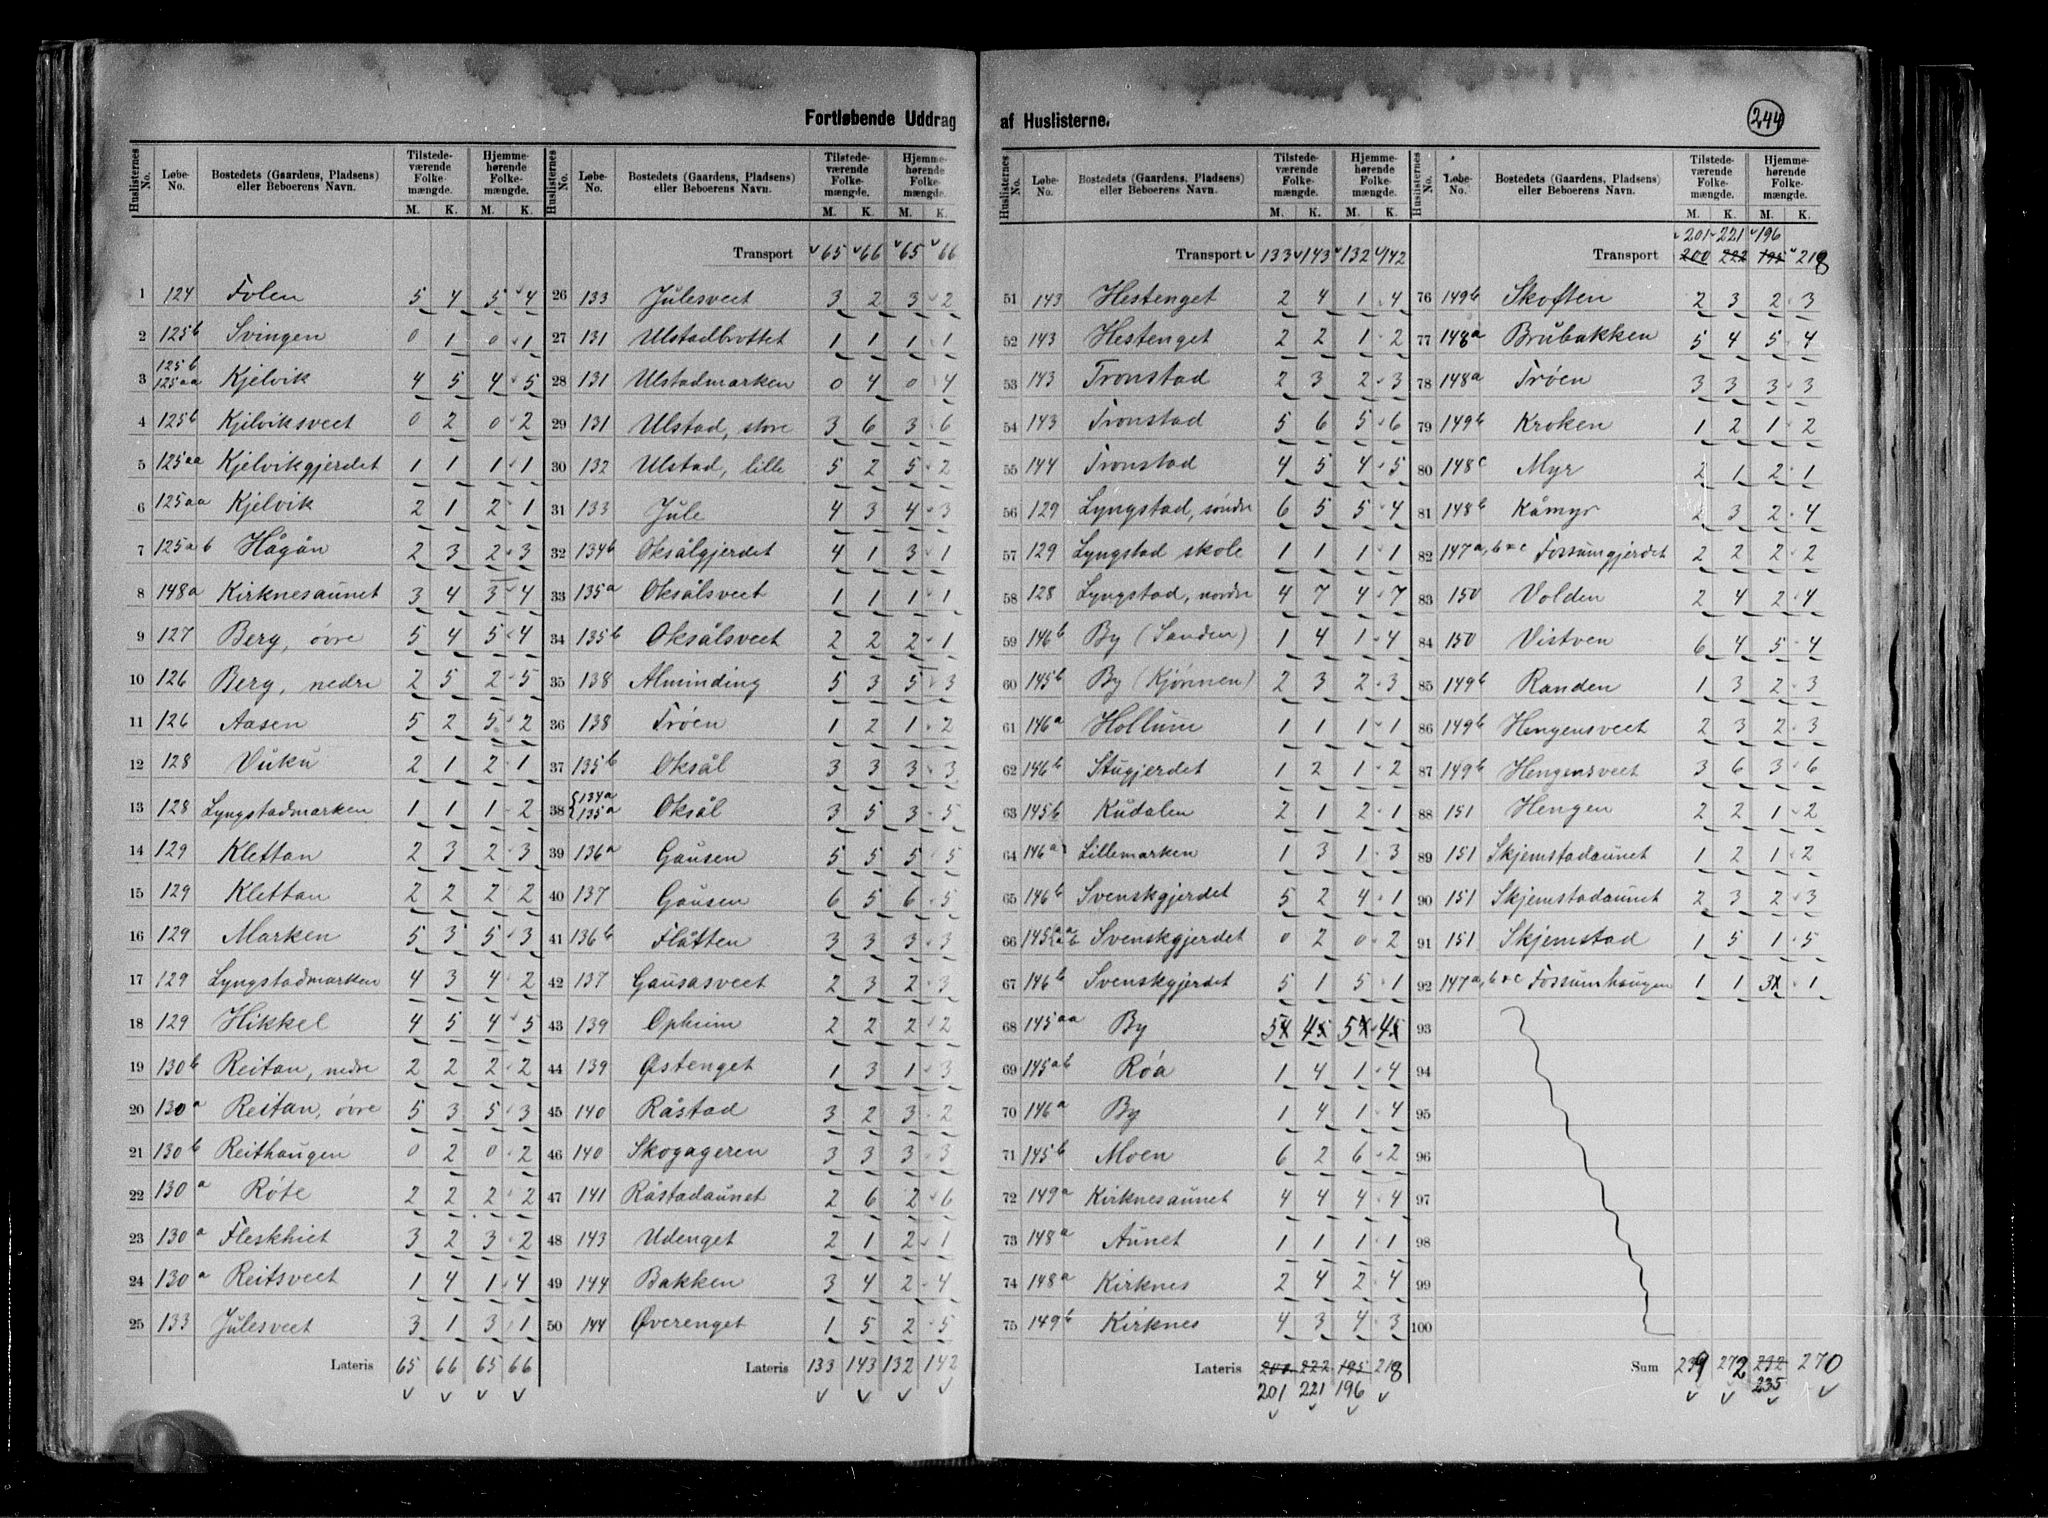 Fortløbende Uddrag af Huslisterne.
244
Huslisternes No. | Løbe-No. | Bostedets (Gaardens, Pladsens) eller Beboerens Navn. | Tilstedeværende Folkemængde. M. K. | Hjemmehørende Folkemængde. M. K.
1 124 Folen 5 4 5 4
2 125b Svingen 0 1 0 1
3 125b 125aa Kjelvik 4 5 4 5
4 125b Kjelviksveet 0 2 0 2
5 125aa Kjelvikgjerdet 1 1 1 1
6 125aa Kjelvik 2 1 2 1
7 125ab Hågån 2 3 2 3
8 148a Kirknesaunet 3 4 3 4
9 127 Berg, övre 5 4 5 4
10 126 Berg, nedre 2 5 2 5
11 126 Aasen 5 2 5 2
12 128 Vuku 2 1 2 1
13 128 Lyngstadmarken 1 1 1 2
14 129 Klettan 2 3 2 3
15 129 Klettan 2 2 2 2
16 129 Marken 5 3 5 3
17 129 Lyngstadmarken 4 3 4 2
18 129 Hikkel 4 5 4 5
19 130b Reitan, nedre 2 2 2 2
20 130a Reitan, övre 5 3 5 3
21 130b Reithaugen 0 2 0 2
22 130a Röte 2 2 2 2
23 130a Fleskhiet 3 2 3 2
24 130a Reitsveet 1 4 1 4
25 133 Julesveet 3 1 3 1
Lateris 65 66 65 66
Huslisternes No. | Løbe-No. | Bostedets (Gaardens, Pladsens) eller Beboerens Navn. | Tilstedeværende Folkemængde. M. K. | Hjemmehørende Folkemængde. M. K.
Transport 65 66 65 66
26 133 Julesveet 3 2 3 2
27 131 Ulstadbrottet 1 1 1 1
28 131 Ulstadmarken 0 4 0 4
29 131 Ulstad, store 3 6 3 6
30 132 Ulstad, lille 5 2 5 2
31 133 Jule 4 3 4 3
32 134b Oksålgjerdet 4 1 3 1
33 135a Oksålsveet 1 1 1 1
34 135b Oksålsveet 2 2 2 1
35 138 Alminding 5 3 5 3
36 138 Tröen 1 2 1 2
37 135b Oksål 3 3 3 3
38 134a 135a Oksål 3 5 3 5
39 136a Gausen 5 5 5 5
40 137 Gausen 6 5 6 5
41 136b Flåtten 3 3 3 3
42 137 Gausasveet 2 3 2 3
43 139 Opheim 2 2 2 2
44 139 Østenget 1 3 1 3
45 140 Råstad 3 2 3 2
46 140 Skogageren 3 3 3 3
47 141 Råstadaunet 2 6 2 6
48 143 Udenget 2 1 2 1
49 144 Bakken 3 4 2 4
50 144 Øverenget 1 5 2 5
Lateris 133 143 132 142
Huslisternes No. | Løbe-No. | Bostedets (Gaardens, Pladsens) eller Beboerens Navn. | Tilstedeværende Folkemængde. M. K. | Hjemmehørende Folkemængde. M. K.
Transport 133 143 132 142
51 143 Hestenget 2 4 1 4
52 143 Hestenget 2 2 1 2
53 143 Tronstad 2 3 2 3
54 143 Tronstad 5 6 5 6
55 144 Tronstad 4 5 4 5
56 129 Lyngstad, söndre 6 5 5 4
57 129 Lyngstad skole 1 1 1 1
58 128 Lyngstad, nordre 4 7 4 7
59 146b By (Sanden) 1 4 1 4
60 145b By (Kjönnen) 2 3 2 3
61 146a Hollum 1 1 1 1
62 146b Stugjerdet 1 2 1 2
63 145b Kudalen 2 1 2 1
64 146a Lillemarken 1 3 1 3
65 146b Svenskgjerdet 5 2 4 1
66 145aa ab Svenskgjerdet 0 2 0 2
67 146b Svenskgjerdet 5 1 5 1
68 145aa By 5 4 5 4
69 145ab Röa 1 4 1 4
70 146a By 1 4 1 4
71 145b Moen 6 2 6 2
72 149a Kirknesaunet 4 4 4 4
73 148a Aunet 1 1 1 1
74 148a Kirknes 2 4 2 4
75 149b Kirknes 4 3 4 3
Lateris 200 222 195 218
201 221 196
Huslisternes No. | Løbe-No. | Bostedets (Gaardens, Pladsens) eller Beboerens Navn. | Tilstedeværende Folkemængde. M. K. | Hjemmehørende Folkemængde. M. K.
201 221 196
Transport 200 222 195 218
76 149b Skoften 2 3 2 3
77 148a Brubakken 5 4 5 4
78 148a Tröen 3 3 3 3
79 149b Kroken 1 2 1 2
80 148c Myr 2 1 2 1
81 148b Kåmyr 2 3 2 4
82 147a, b & c Fossumgjerdet 2 2 2 2
83 150 Volden 2 4 2 4
84 150 Vistven 6 4 5 4
85 149b Randen 1 3 2 3
86 149b Hengensveet 2 3 2 3
87 149b Hengensveet 3 6 3 6
88 151 Hengen 2 2 1 2
89 151 Skjemstadaunet 1 2 1 2
90 151 Skjemstadaunet 2 3 2 3
91 151 Skjemstad 1 5 1 5
92 147a, b & c Fossumhaugen 1 1 3 1
93
94
95
96
97
98
99
100
Sum 239 272 232 270
235